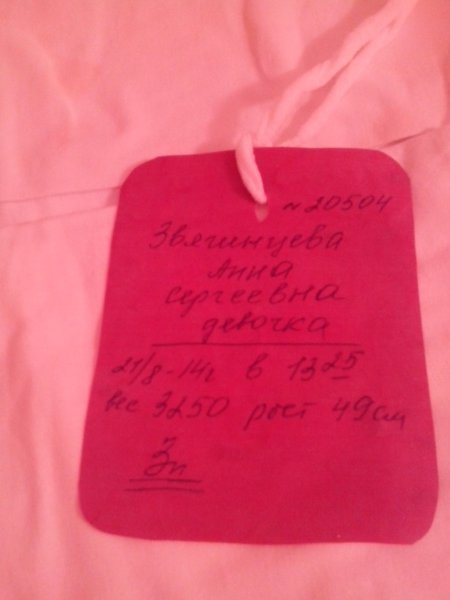 № 20504
Звягинцева
Анна
Сергеевна
девочка
21/8-14г в 13 25
вес 3250 рост 49см
3п